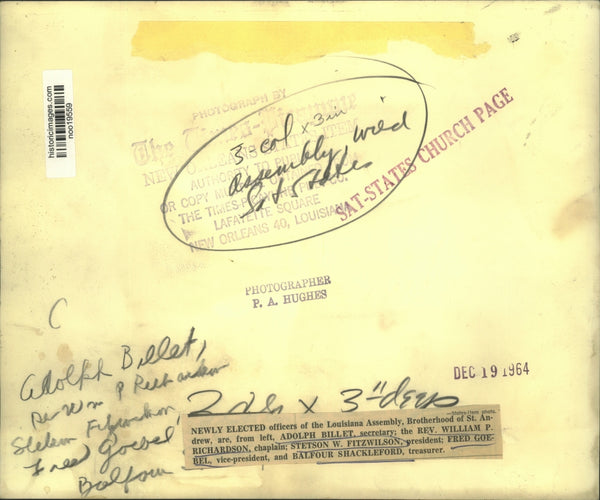 historicimages.com
noo19559
PHOTOGRAPH BY
The Times-Picayune
NEW ORLEANS STATES-ITEM
AUTHORITY TO
OR COPY MUST BE
THE TIMES-PICAYUNE PUB. CO.
LAFAYETTE SQUARE
NEW ORLEANS 40, LOUISIANA
3 col x 3 in
assembly, wied
Sat States
SAT-STATES CHURCH PAGE
PHOTOGRAPHER
P. A. HUGHES
C
DEC 19 1964
Adolph Billet,
Rev Wm P Richardson
Fred Goebel,
Balfour
x 3" deep
NEWLY ELECTED officers of the Louisiana Assembly, Brotherhood of St. An-
drew, are, from left, ADOLPH BILLET, secretary; the REV. WILLIAM P.
RICHARDSON, chaplain; STETSON W. FITZWILSON, president; FRED GOE-
BEL, vice-president, and BALFOUR SHACKLEFORD, treasurer.